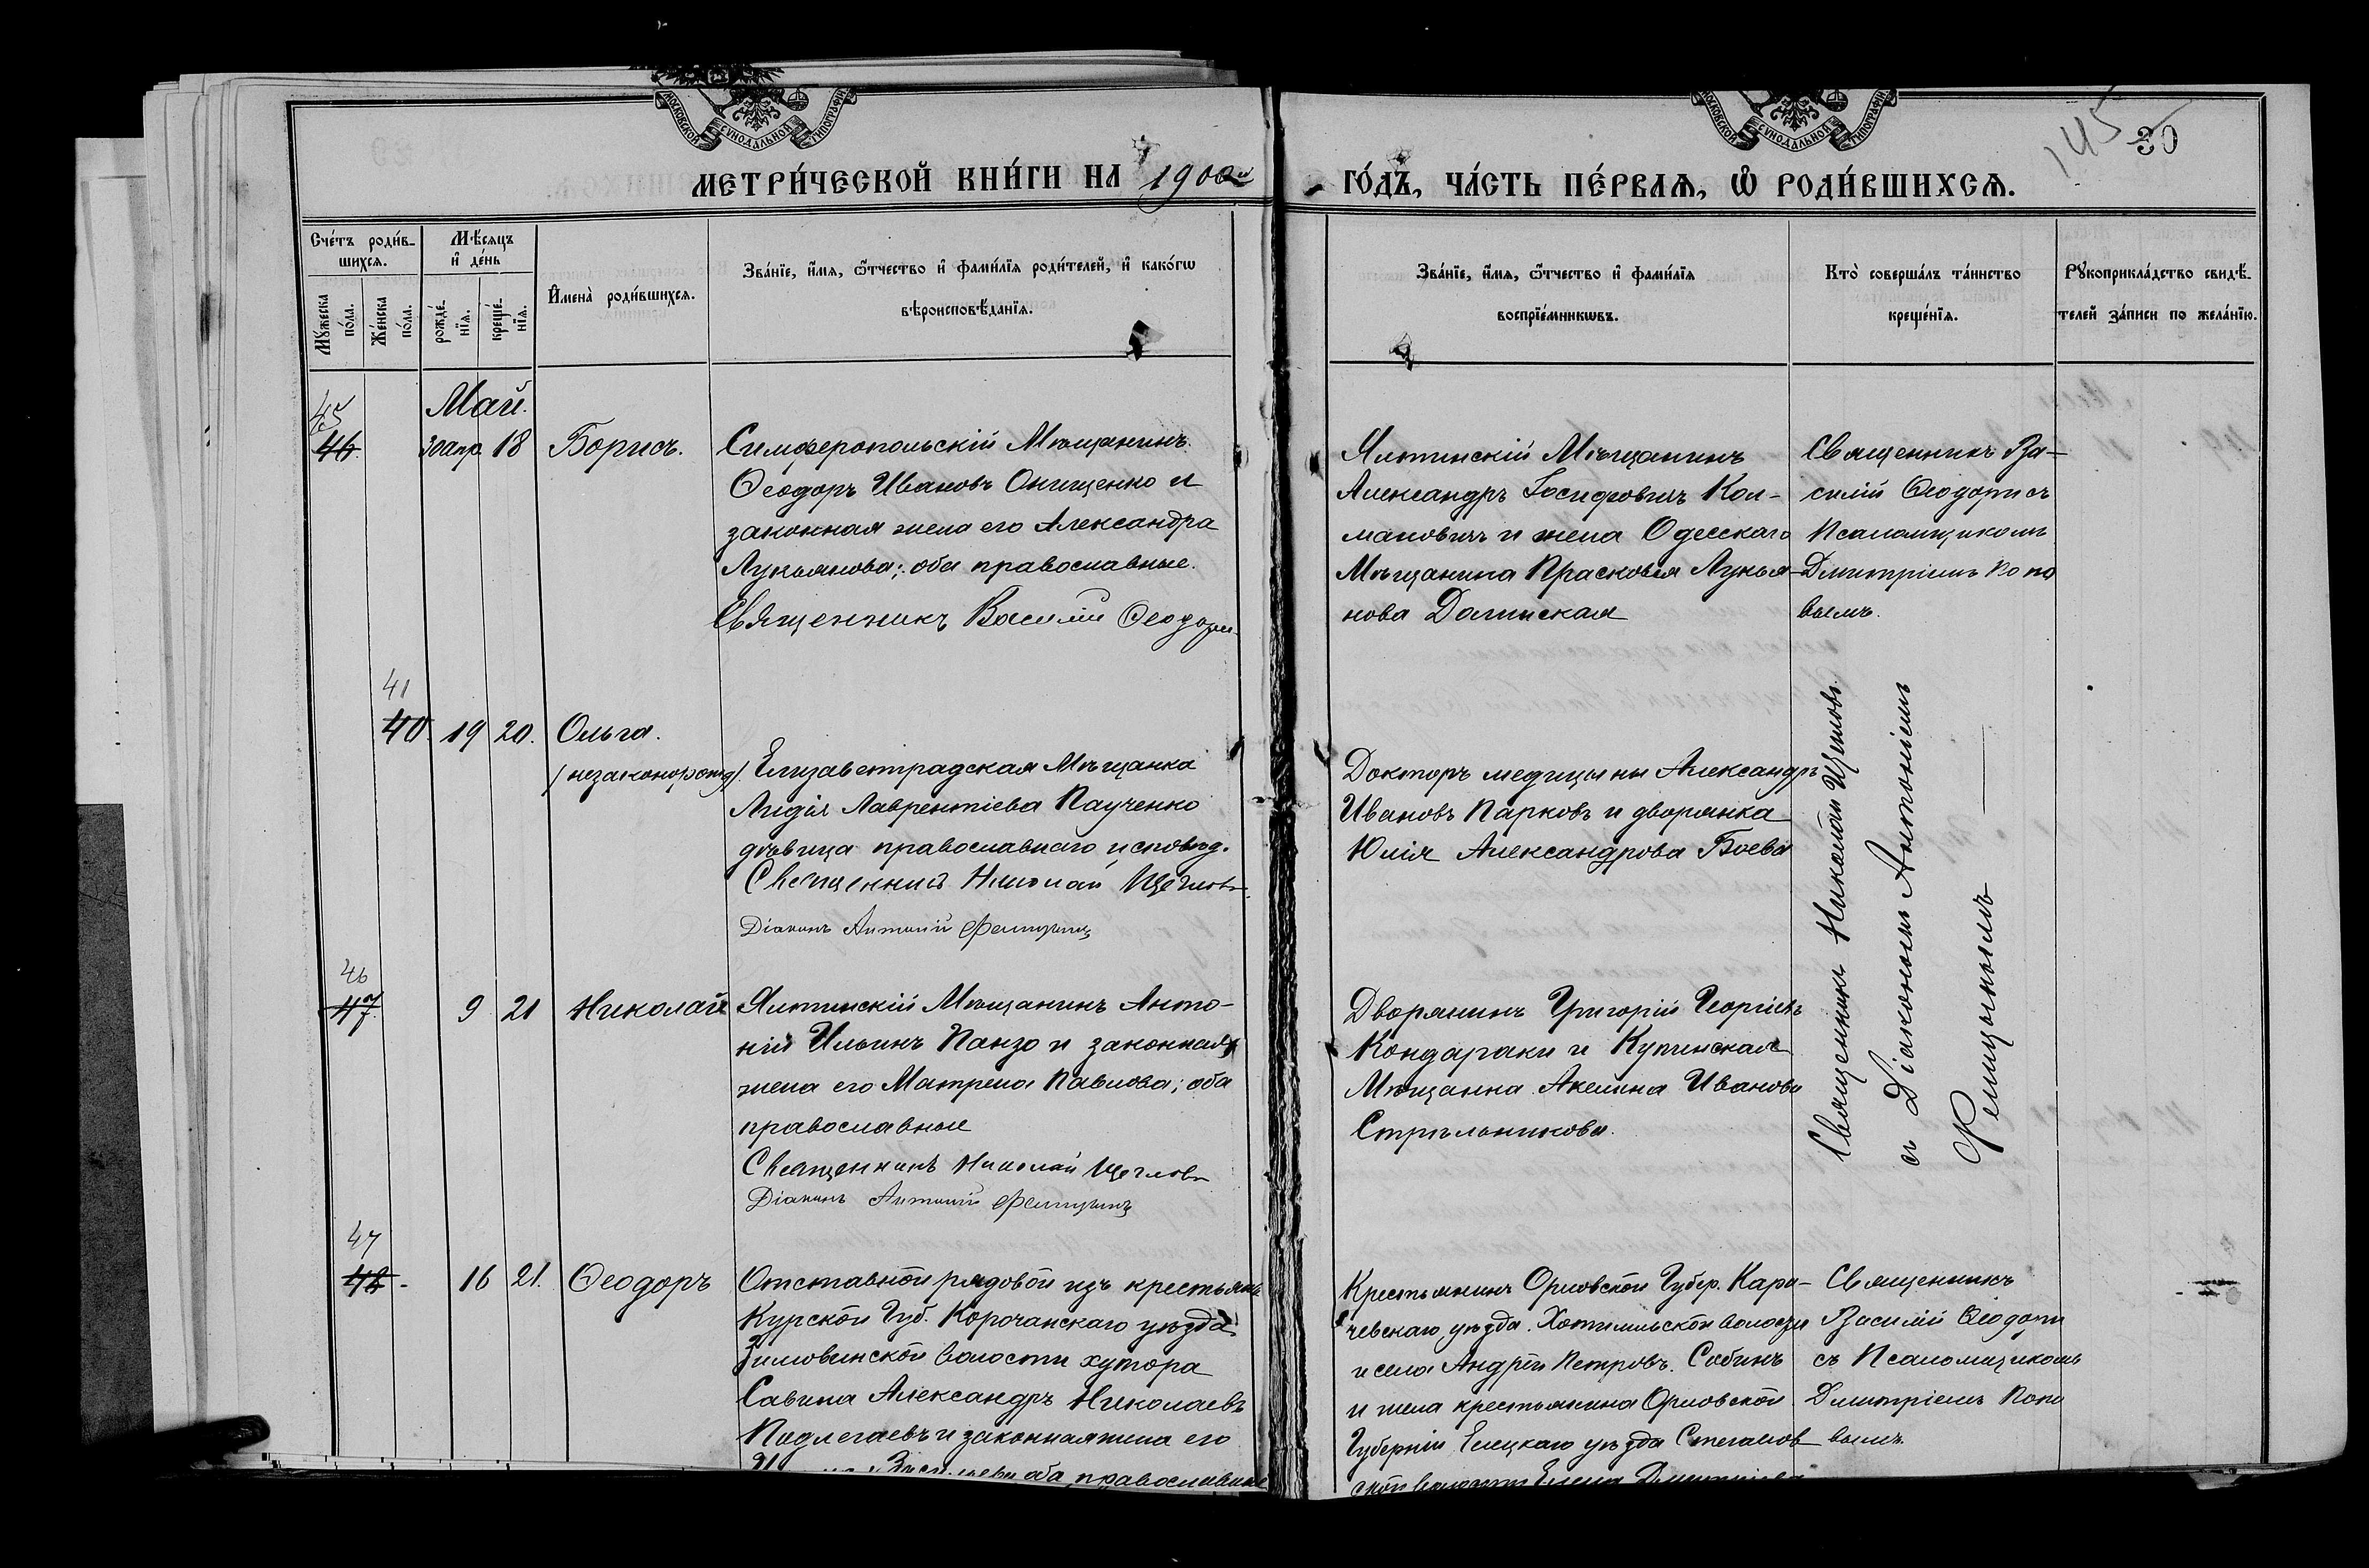 МОСКОВСКОЙ СУНОДАЛЬНОЙ ТИПОГРАФІИ
МОСКОВСКОЙ СУНОДАЛЬНОЙ ТИПОГРАФІИ
145
30
МЕТРИ́ЧЕСКОЙ КНИ́ГИ НА 1900й
ГО́ДЪ, ЧА́СТЬ ПЕ́РВАѦ, Ѡ҆ РОДИ́ВШИХСѦ.
Сче́тъ роди́в-
шихсѧ.
Мꙋжеска по́ла.
Же́нска по́ла.
Мѣ́сѧцъ
и҆ де́нь
рожде́-
нїѧ.
креще́-
нїѧ.
И҆мена̀ роди́вшихсѧ.
Зва́нїе, и҆́мѧ, ѻ҆́тчество и҆ фами́лїѧ роди́телей, и҆ како́гѡ
вѣроисповѣ́данїѧ.
Зва́нїе, и҆́мѧ, ѻ҆́тчество и҆ фами́лїѧ
воспрїе́мникѡвъ.
Кто̀ соверша́лъ та́инство
креще́нїѧ.
Рꙋкоприкла́дство свидѣ́-
телей за́писи по жела́нїю.
Май.
45
46. 30 апр. 18 Борисъ.
Симферопольскій Мѣщанинъ
Ѳеодоръ Ивановъ Онищенко и
законная жена его Александра
Лукьянова; оба православные.
Священникъ Василій
Ялтинскій Мѣщанинъ
Александръ Іосифовичъ
и жена Одесскаго
Мѣщанина Прасковья Лукья-
нова
Священникъ Ва-
силій съ
Псаломщикомъ
Дмитріемъ Попо
вымъ.
41
40. 19 20. Ольга.
(незаконорожд).
Елизаветградская Мѣщанка
Лидія Лаврентіева Паученко
дѣвица православнаго исповѣд.
Священникъ Николай Щегловъ
Діаконъ Антоній
Докторъ медицины Александръ
Ивановъ Парковъ и дворянка
Юлія Александрова Боева
Священникъ Николай Щегловъ.
съ Діакономъ Антоніемъ
46
47. 9 21 Николай
Ялтинскій Мѣщанинъ Анто-
ній Ильинъ Панзо и законная
жена его Матрена Павлова; оба
православные
Священникъ Николай Щегловъ
Діаконъ Антоній
Дворянинъ Григорій Георгіевъ
Кондараки и Купинская
Мѣщанка Акелина Иванова
Стрѣльникова.
47
48. 16 21. Ѳеодоръ
Отставной рядовой изъ крестьянъ
Курской Губ. Корочанскаго уѣзда
волости хутора
Савина Александръ Николаевъ
Подлегаевъ и законная жена его
оба православные
Крестьянинъ Орловской Губер. Кара-
чевскаго уѣзда. Хотимльской волости
и села Андрей Петровъ. Сабинъ
и жена крестьянина Орловской
Губерніи Елецкаго уѣзда Стегалов
ской волости Елена
Священникъ
Василій
съ Псаломщикомъ
Дмитріемъ Попо
вымъ.